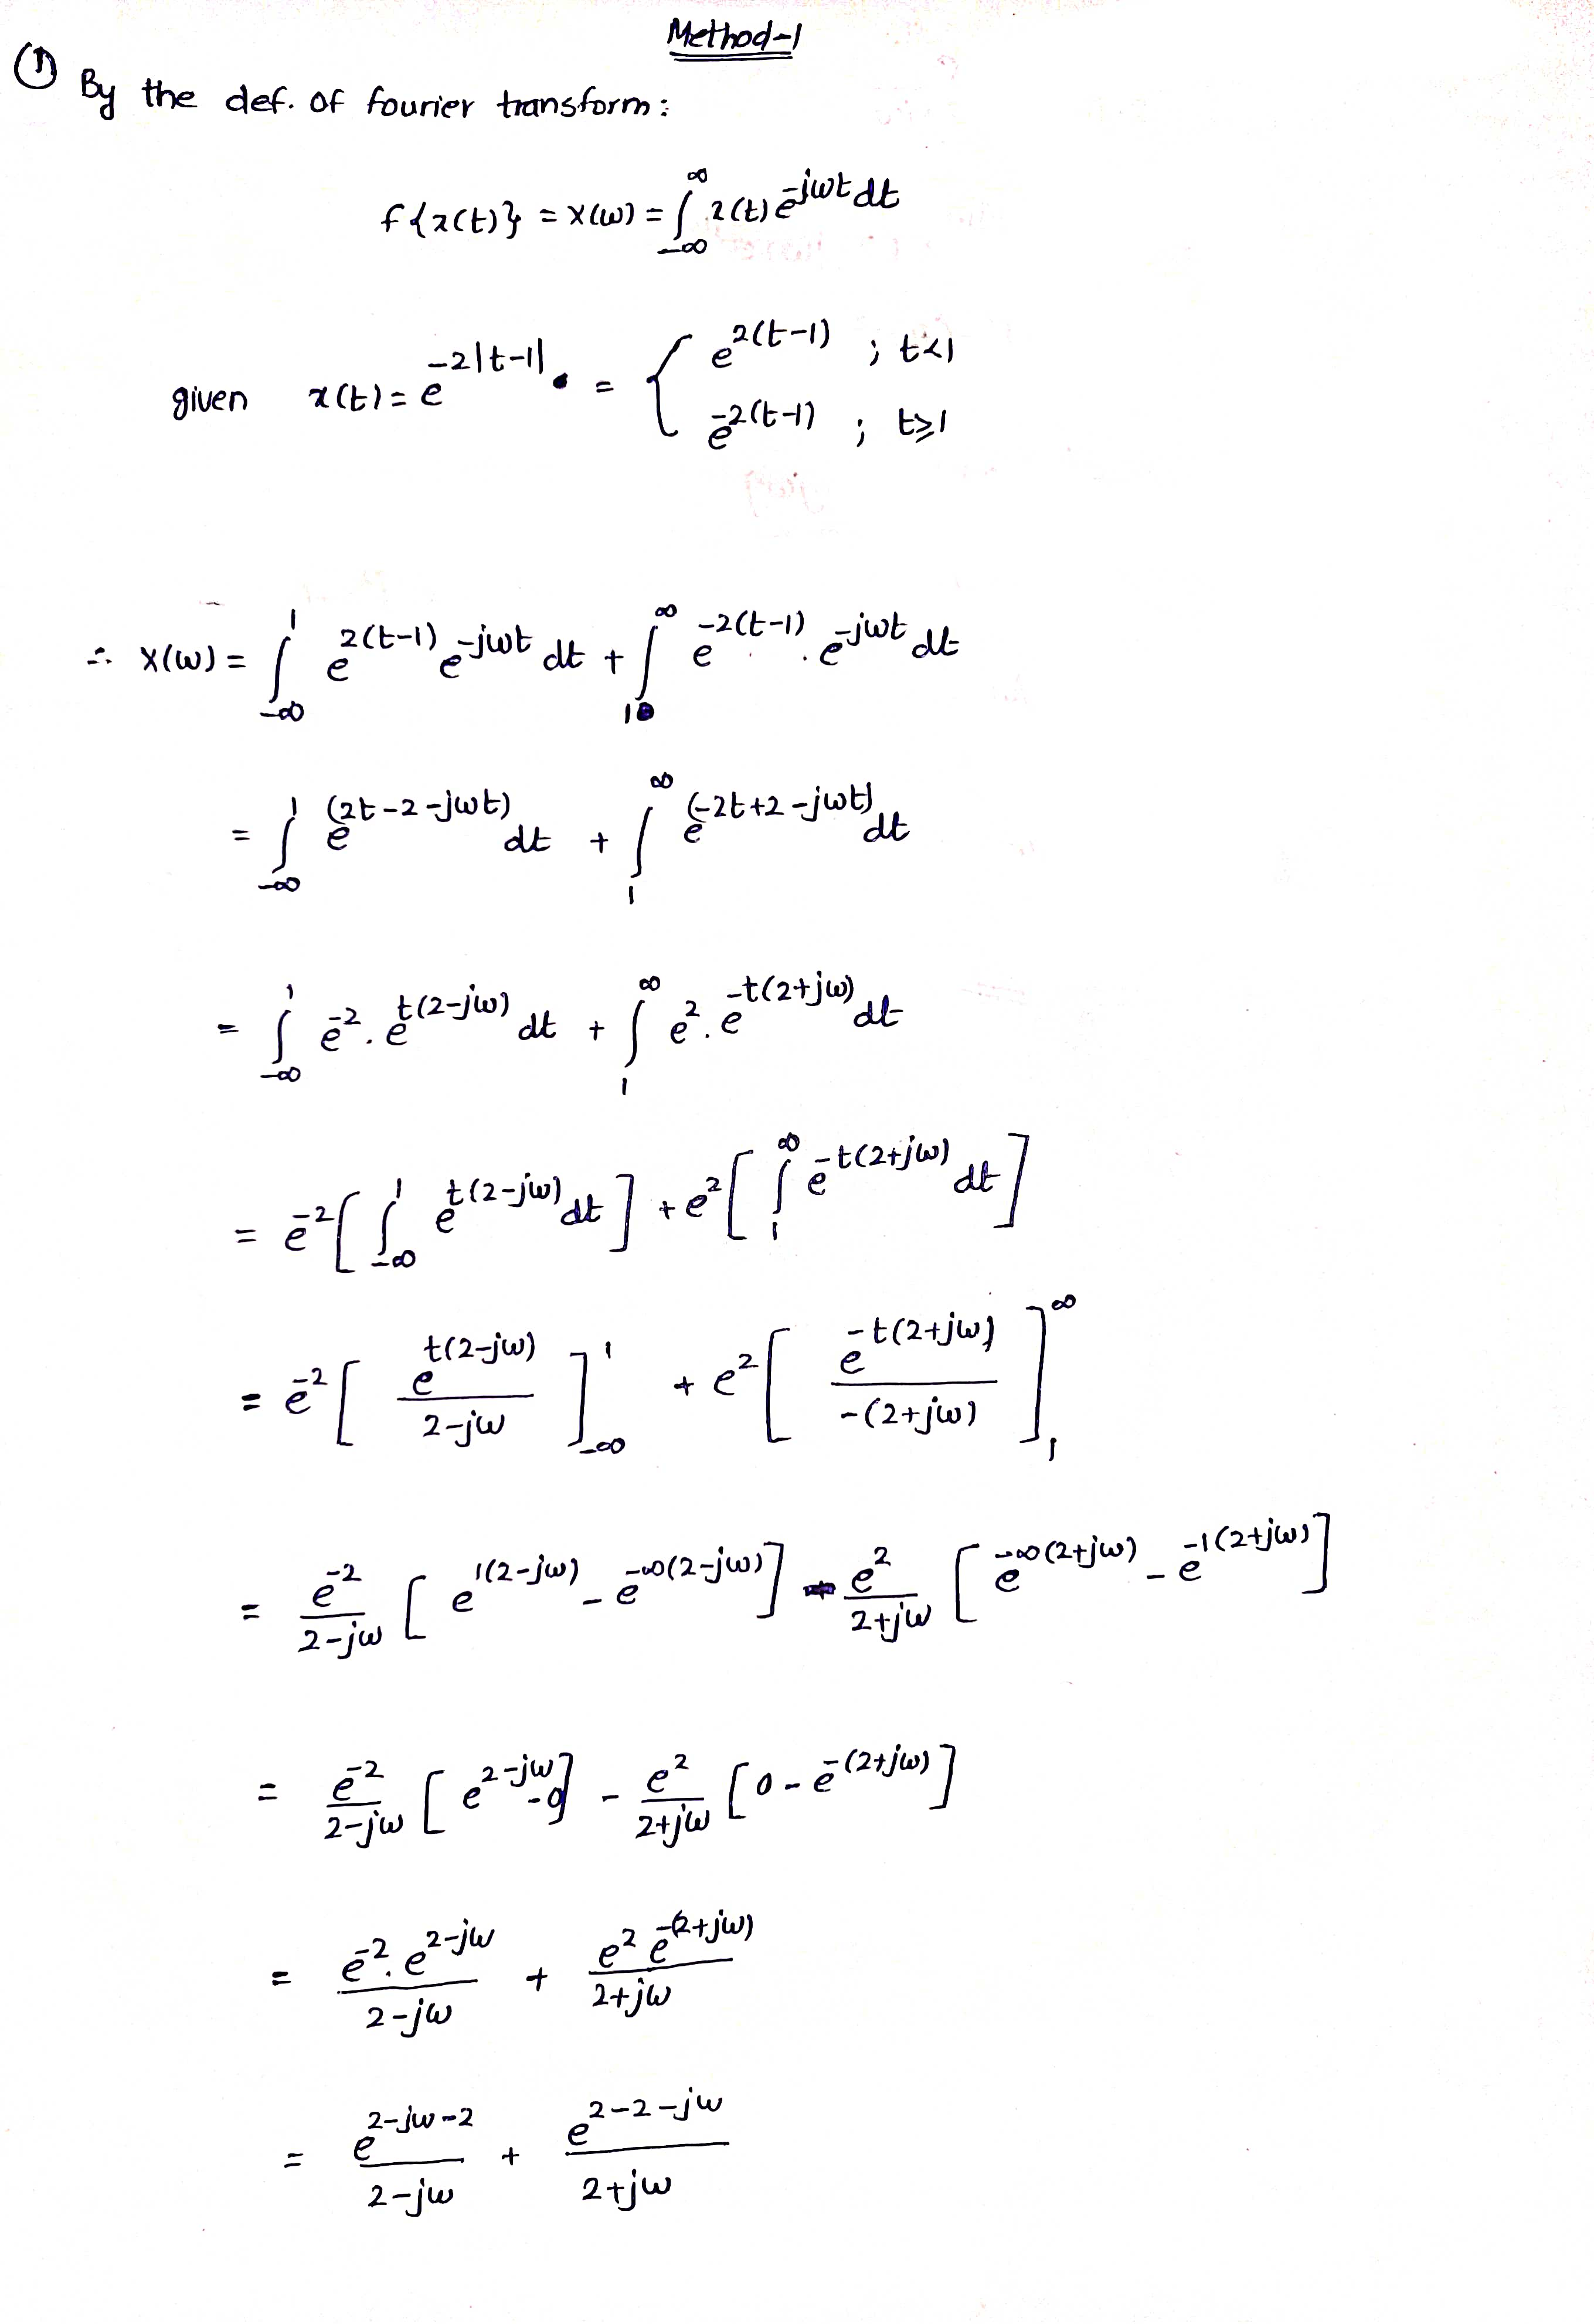 Method-1
① By the def. of fourier transform:
f{x(t)} = X(ω) = ∫_{-∞}^{∞} x(t) e^{-jωt} dt
given x(t) = e^{-2|t-1|} = { e^{2(t-1)} ; t<1
e^{-2(t-1)} ; t≥1
∴ X(ω) = ∫_{-∞}^{1} e^{2(t-1)} e^{-jωt} dt + ∫_{1}^{∞} e^{-2(t-1)} . e^{-jωt} dt
= ∫_{-∞}^{1} e^{(2t-2-jωt)} dt + ∫_{1}^{∞} e^{(-2t+2-jωt)} dt
= ∫_{-∞}^{1} e^{-2} . e^{t(2-jω)} dt + ∫_{1}^{∞} e^{2} . e^{-t(2+jω)} dt
= e^{-2} [ ∫_{-∞}^{1} e^{t(2-jω)} dt ] + e^{2} [ ∫_{1}^{∞} e^{-t(2+jω)} dt ]
= e^{-2} [ e^{t(2-jω)} / 2-jω ]_{-∞}^{1} + e^{2} [ e^{-t(2+jω)} / -(2+jω) ]_{1}^{∞}
= e^{-2} / 2-jω [ e^{1(2-jω)} - e^{-∞(2-jω)} ] - e^{2} / 2+jω [ e^{-∞(2+jω)} - e^{-1(2+jω)} ]
= e^{-2} / 2-jω [ e^{2-jω} - 0 ] - e^{2} / 2+jω [ 0 - e^{-(2+jω)} ]
= e^{-2} . e^{2-jω} / 2-jω + e^{2} e^{-(2+jω)} / 2+jω
= e^{2-jω-2} / 2-jω + e^{2-2-jω} / 2+jω